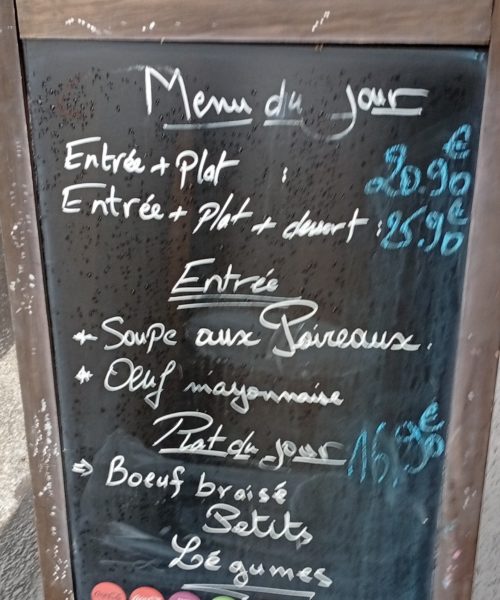 Menu du jour
Entrée + Plat : 20.90€
Entrée + Plat + dessert : 25.90€
Entrée
* Soupe aux Poireaux.
* Oeuf mayonnaise
Plat du jour 16,90€
⇒ Boeuf braisé
Petits
Légumes